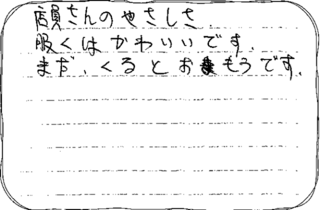 店員さんのやさしさ.
服くはかわいいです.
まだ、くるとおもうです.